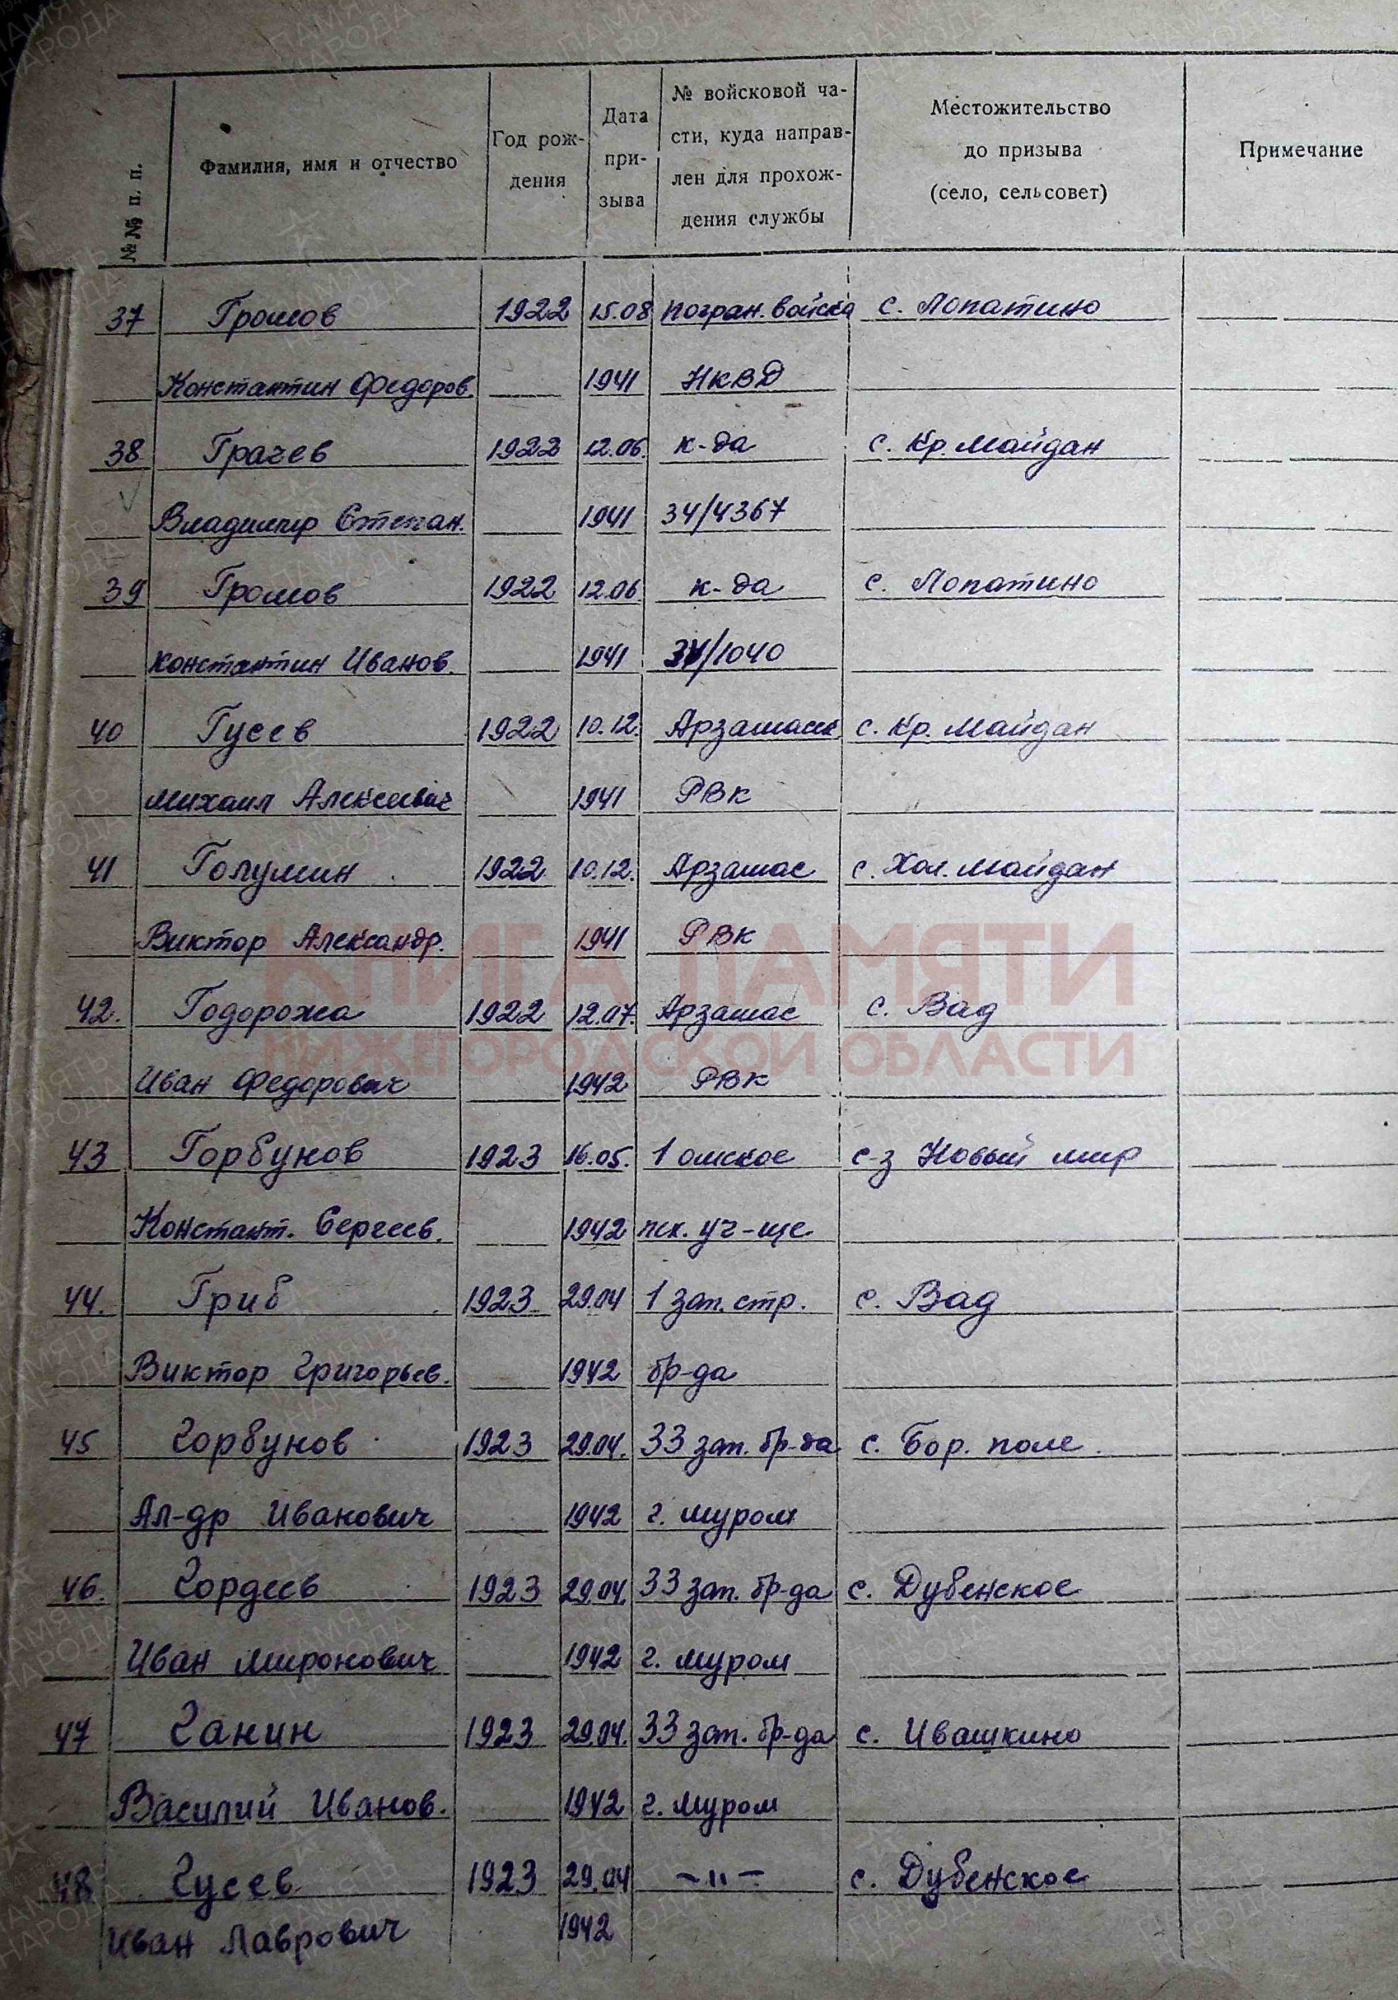 №№ п. п.
Фамилия, имя и отчество
Год рож-
дения
Дата
при-
зыва
№ войсковой ча-
сти, куда направ-
лен для прохож-
дения службы
Местожительство
до призыва
(село, сельсовет)
Примечание
37 Громов 1922 15.08 погран. войска с. Лопатино
Константин Федоров. 1941 НКВД
38 Грачев 1922 12.06. к-да с. Кр. Майдан
Владимир Степан. 1941 34/4367
39 Громов 1922 12.06 к-да с. Лопатино
Константин Иванов. 1941 34/1040
40 Гусев 1922 10.12. Арзамасск. с. Кр. Майдан
Михаил Алексеевич 1941 РВК
41 Голумин 1922 10.12. Арзамас с. Хол. Майдан
Виктор Александр. 1941 РВК
КНИГА ПАМЯТИ
42. Годорожа 1922 12.07. Арзамас с. Вад
НИЖЕГОРОДСКОЙ ОБЛАСТИ
Иван Федорович 1942 РВК
43 Горбунов 1923 16.05. 1 омское с-з Новый мир
Констант. Сергеев. 1942 пех. уч-ще.
44. Гриб 1923 29.04 1 зап. стр. с. Вад
Виктор Григорьев. 1942 бр-да
45 Горбунов 1923 29.04. 33 зап. бр-да с. Бор. поле.
Ал-др Иванович 1942 г. Муром
46. Гордеев 1923 29.04. 33 зап. бр-да с. Дубенское
Иван Миронович 1942 г. Муром
47 Ганин 1923 29.04. 33 зап. бр-да с. Ивашкино
Василий Иванов. 1942 г. Муром
48 Гусев 1923 29.04 -"- с. Дубенское
Иван Лаврович 1942